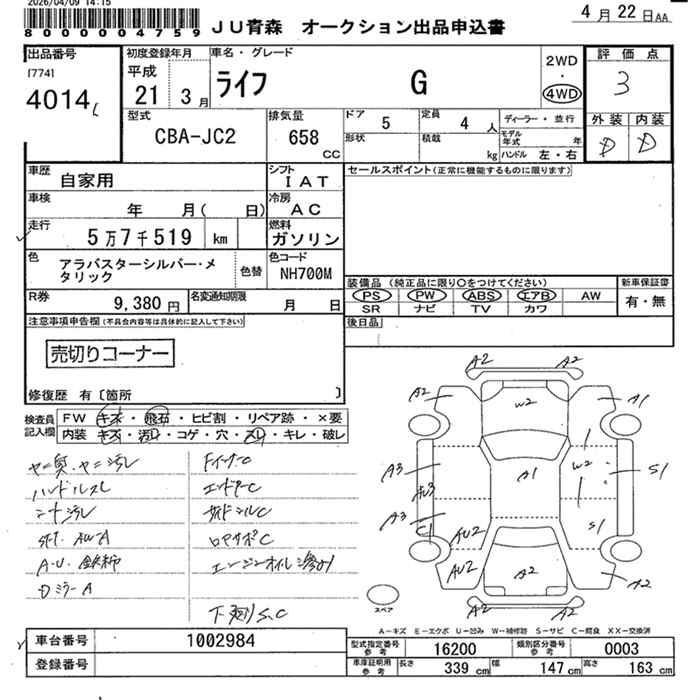 2026/04/09 14:15
8000004759
JU青森 オークション出品申込書
4月22日AA
出品番号
[774]
4014
初度登録年月
平成
21 3月
車名・グレード
ライフ G
2WD
・
4WD
評価点
3
外装 内装
D D
型式
CBA-JC2
排気量
658
CC
ドア
5
定員
4人
形状
積載
kg
ディーラー・並行
モデル
年式 年
ハンドル 左・右
車歴
自家用
シフト
IAT
車検
年 月( 日)
冷房
AC
走行
5万7千519 km
燃料
ガソリン
色
アラバスターシルバー・メ
タリック
色替
色コード
NH700M
R券
9,380円
名変通知期限
月 日
セールスポイント(正常に機能するものに限ります)
装備品(純正品に限り○をつけてください)
PS PW ABS エアB AW
SR ナビ TV カワ
新車保証書
有・無
後日品
注意事項申告欄(不具合内容等は具体的に記入して下さい)
売切りコーナー
修復歴 有〔箇所 〕
検査員
記入欄
FW キズ・飛石・ヒビ割・リペア跡・×要
内装 キズ・汚れ・コゲ・穴・スレ・キレ・破レ
ヤニ臭・ヤニ汚レ
ハンドルスレ
シート汚レ
AWA
Dミラー A
FインナーC
エンドマーC
サイドシルC
ロアサポC
エンジンオイル滲み
下廻りS.C
A2 A2
A2 W2 A1
A3 A1 W2 S1
A3 C1 S1
AU2
AU2 A2 A2
A2 A2
スペア
A-キズ E-エクボ U-凹み W-補修跡 S-サビ C-腐食 XX-交換済
車台番号 1002984
登録番号
型式指定番号
参考
16200
類別区分番号
参考
0003
車庫証明用
参考
長さ 339cm 幅 147cm 高さ 163cm